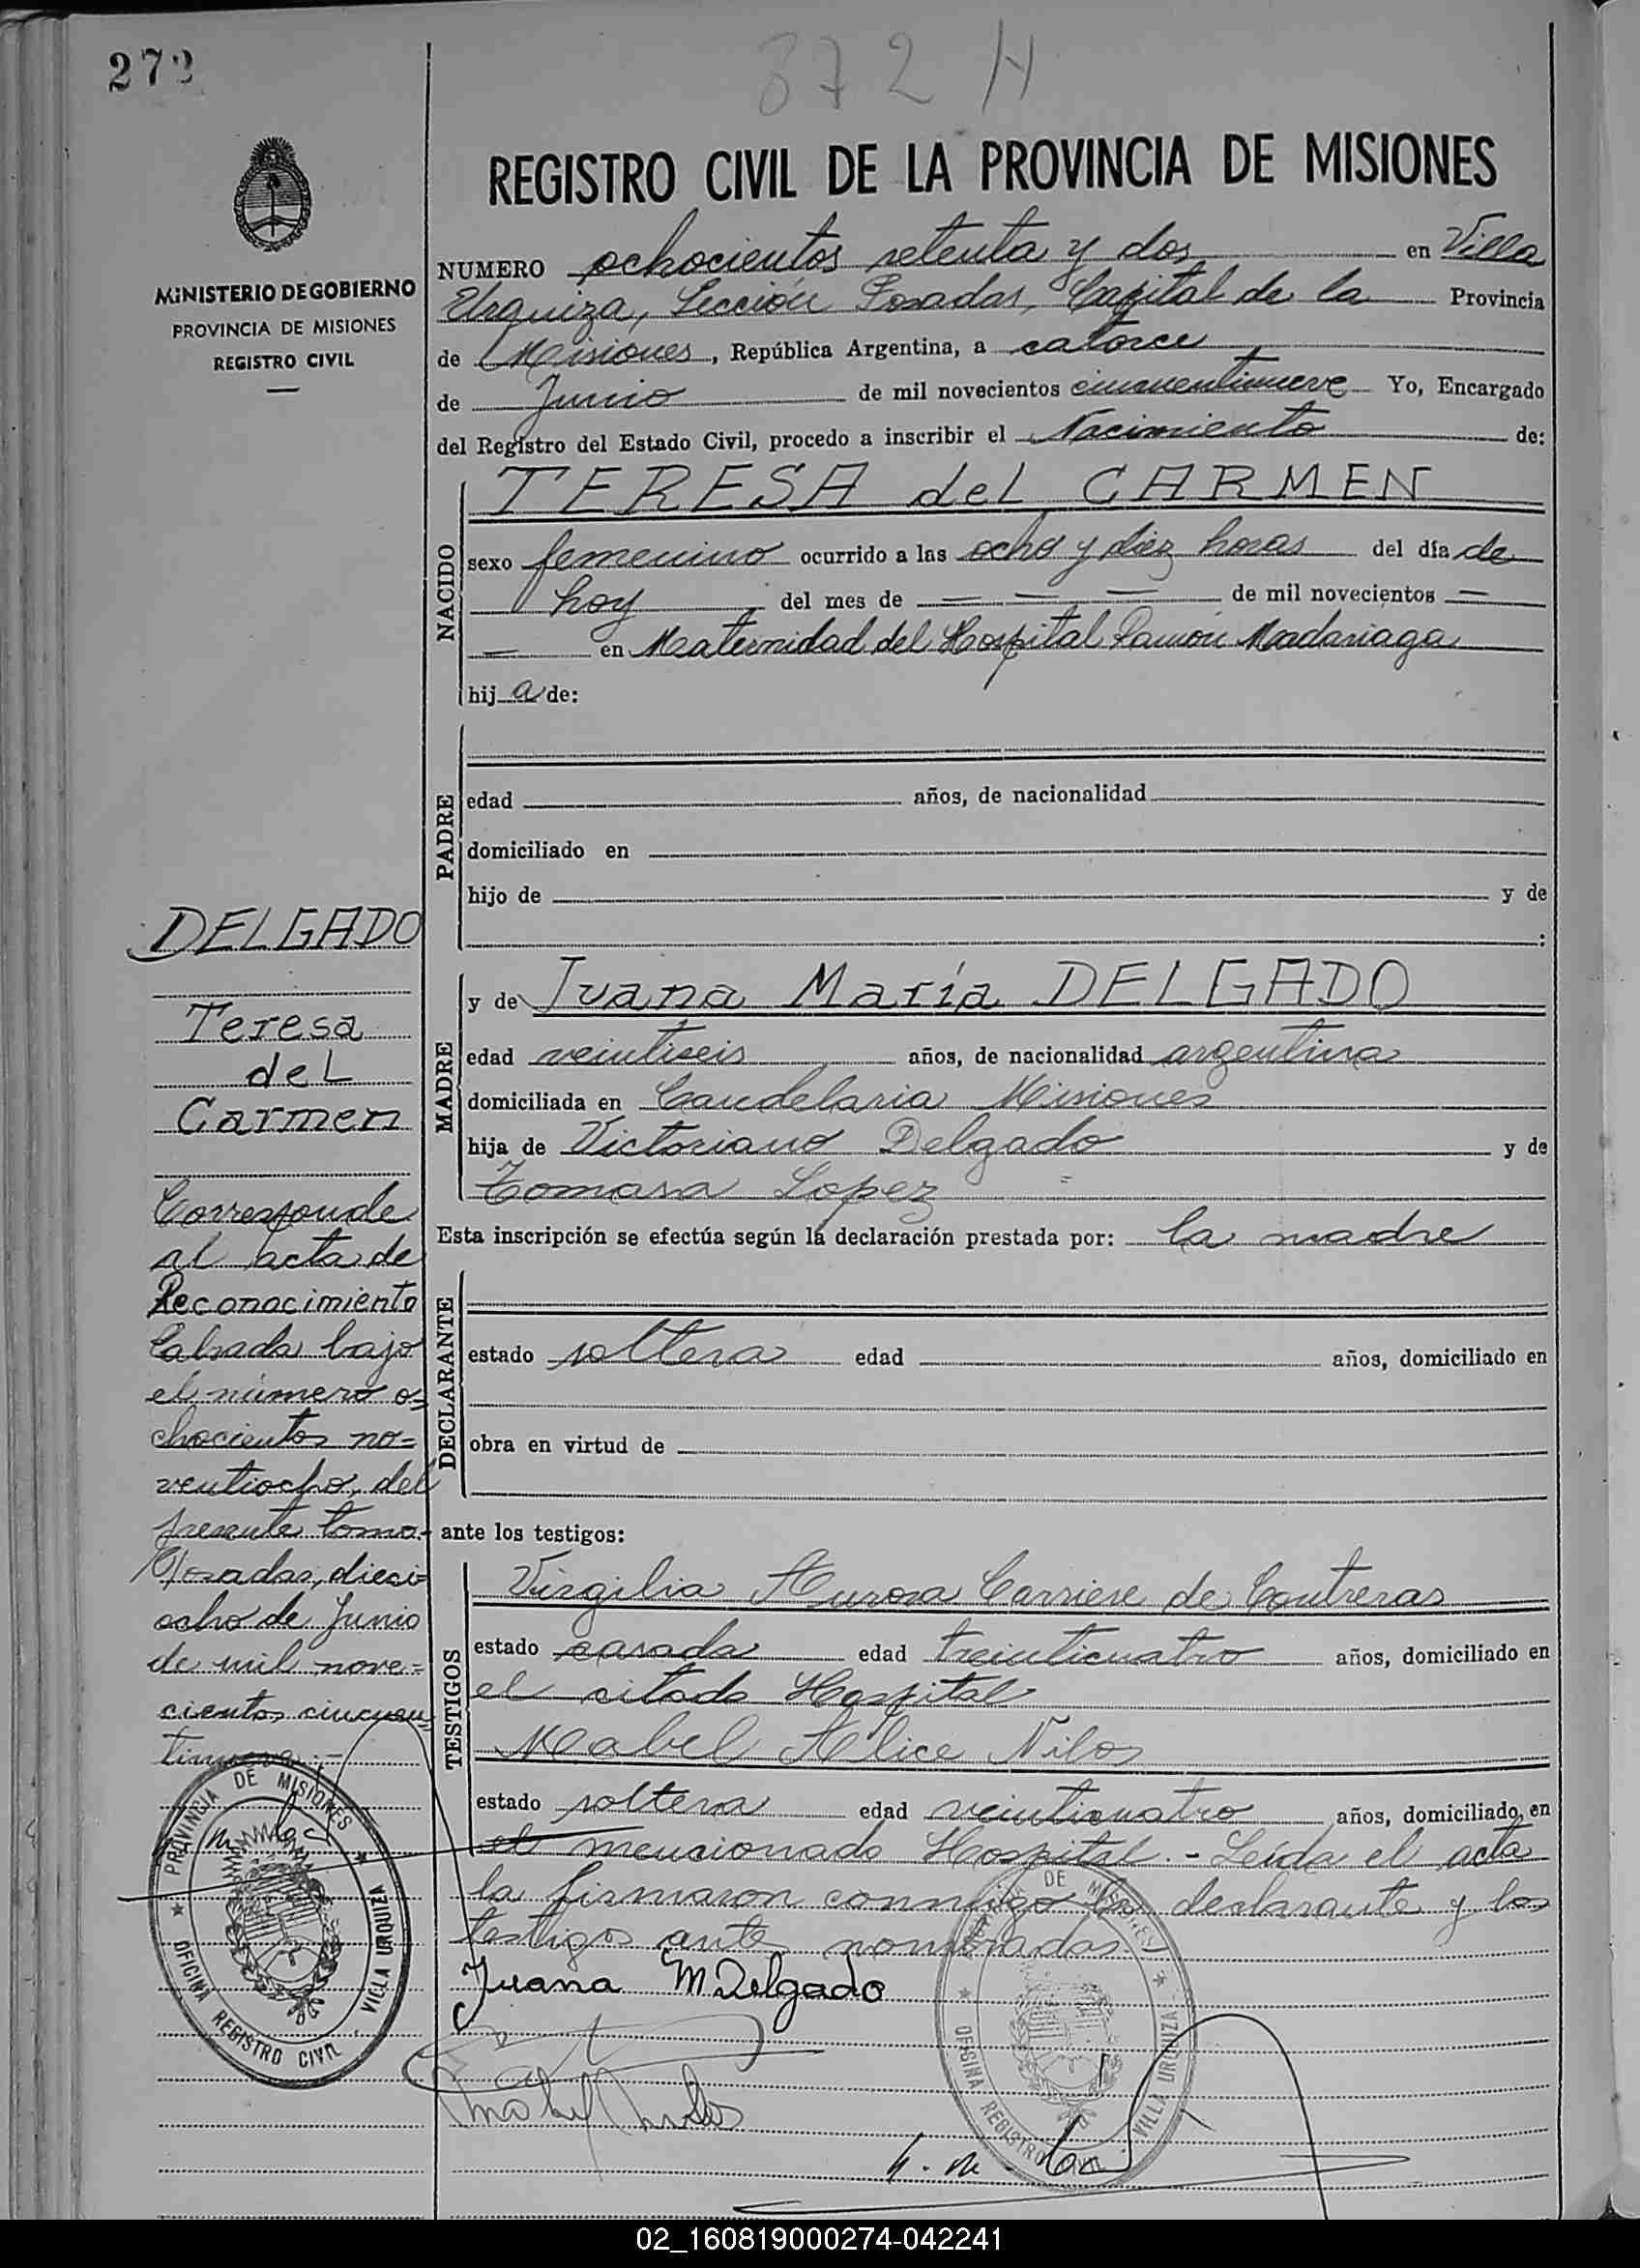 272
872 H
REGISTRO CIVIL DE LA PROVINCIA DE MISIONES
MINISTERIO DE GOBIERNO
PROVINCIA DE MISIONES
REGISTRO CIVIL
NUMERO ochocientos setenta y dos en Villa
Urquiza, Sección Posadas, Capital de la Provincia
de Misiones, República Argentina, a catorce
de Junio de mil novecientos cincuentinueve Yo, Encargado
del Registro del Estado Civil, procedo a inscribir el Nacimiento de:
NACIDO
TERESA del CARMEN
sexo femenino ocurrido a las ocho y diez horas del día de
hoy del mes de — — — de mil novecientos —
— en Maternidad del Hospital Ramón Madariaga
hij a de:
PADRE
edad años, de nacionalidad
domiciliado en
hijo de y de
:
MADRE
y de Juana María DELGADO
edad veintiseis años, de nacionalidad argentina
domiciliada en Candelaria Misiones
hija de Victoriano Delgado y de
Tomasa Lopez
Esta inscripción se efectúa según la declaración prestada por: la madre
DECLARANTE
estado soltera edad años, domiciliado en
obra en virtud de
ante los testigos:
TESTIGOS
Virgilia Aurora Carriere de Contreras
estado casada edad treinticuatro años, domiciliado en
el citado Hospital
Mabel Alice Nilos
estado soltera edad veinticuatro años, domiciliado en
el mencionado Hospital.- Leída el acta
la firmaron conmigo la declarante y los
testigos ante nombrados.
Juana M Delgado
DELGADO
Teresa
del
Carmen
Corresponde
al acta de
Reconocimiento
Labrada bajo
el número o=
chocientos no=
ventiocho, del
presente tomo.-
Posadas, dieci=
ocho de Junio
de mil nove=
cientos cincuen
tinueve.-
PROVINCIA DE MISIONES
OFICINA REGISTRO CIVIL VILLA URQUIZA
DE MISIONES
OFICINA REGISTRO CIVIL VILLA URQUIZA
02_160819000274-042241